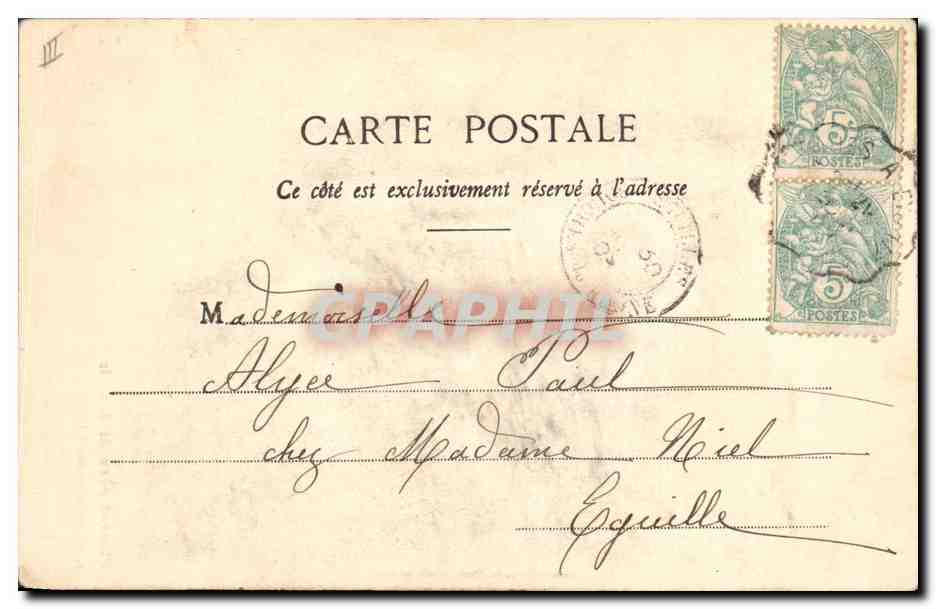 III
CARTE POSTALE
Ce côté est exclusivement réservé à l'adresse
5
POSTES
5
POSTES
Mademoiselle
CPAPHIL
Alyce Paul
chez Madame Niel
Eguille